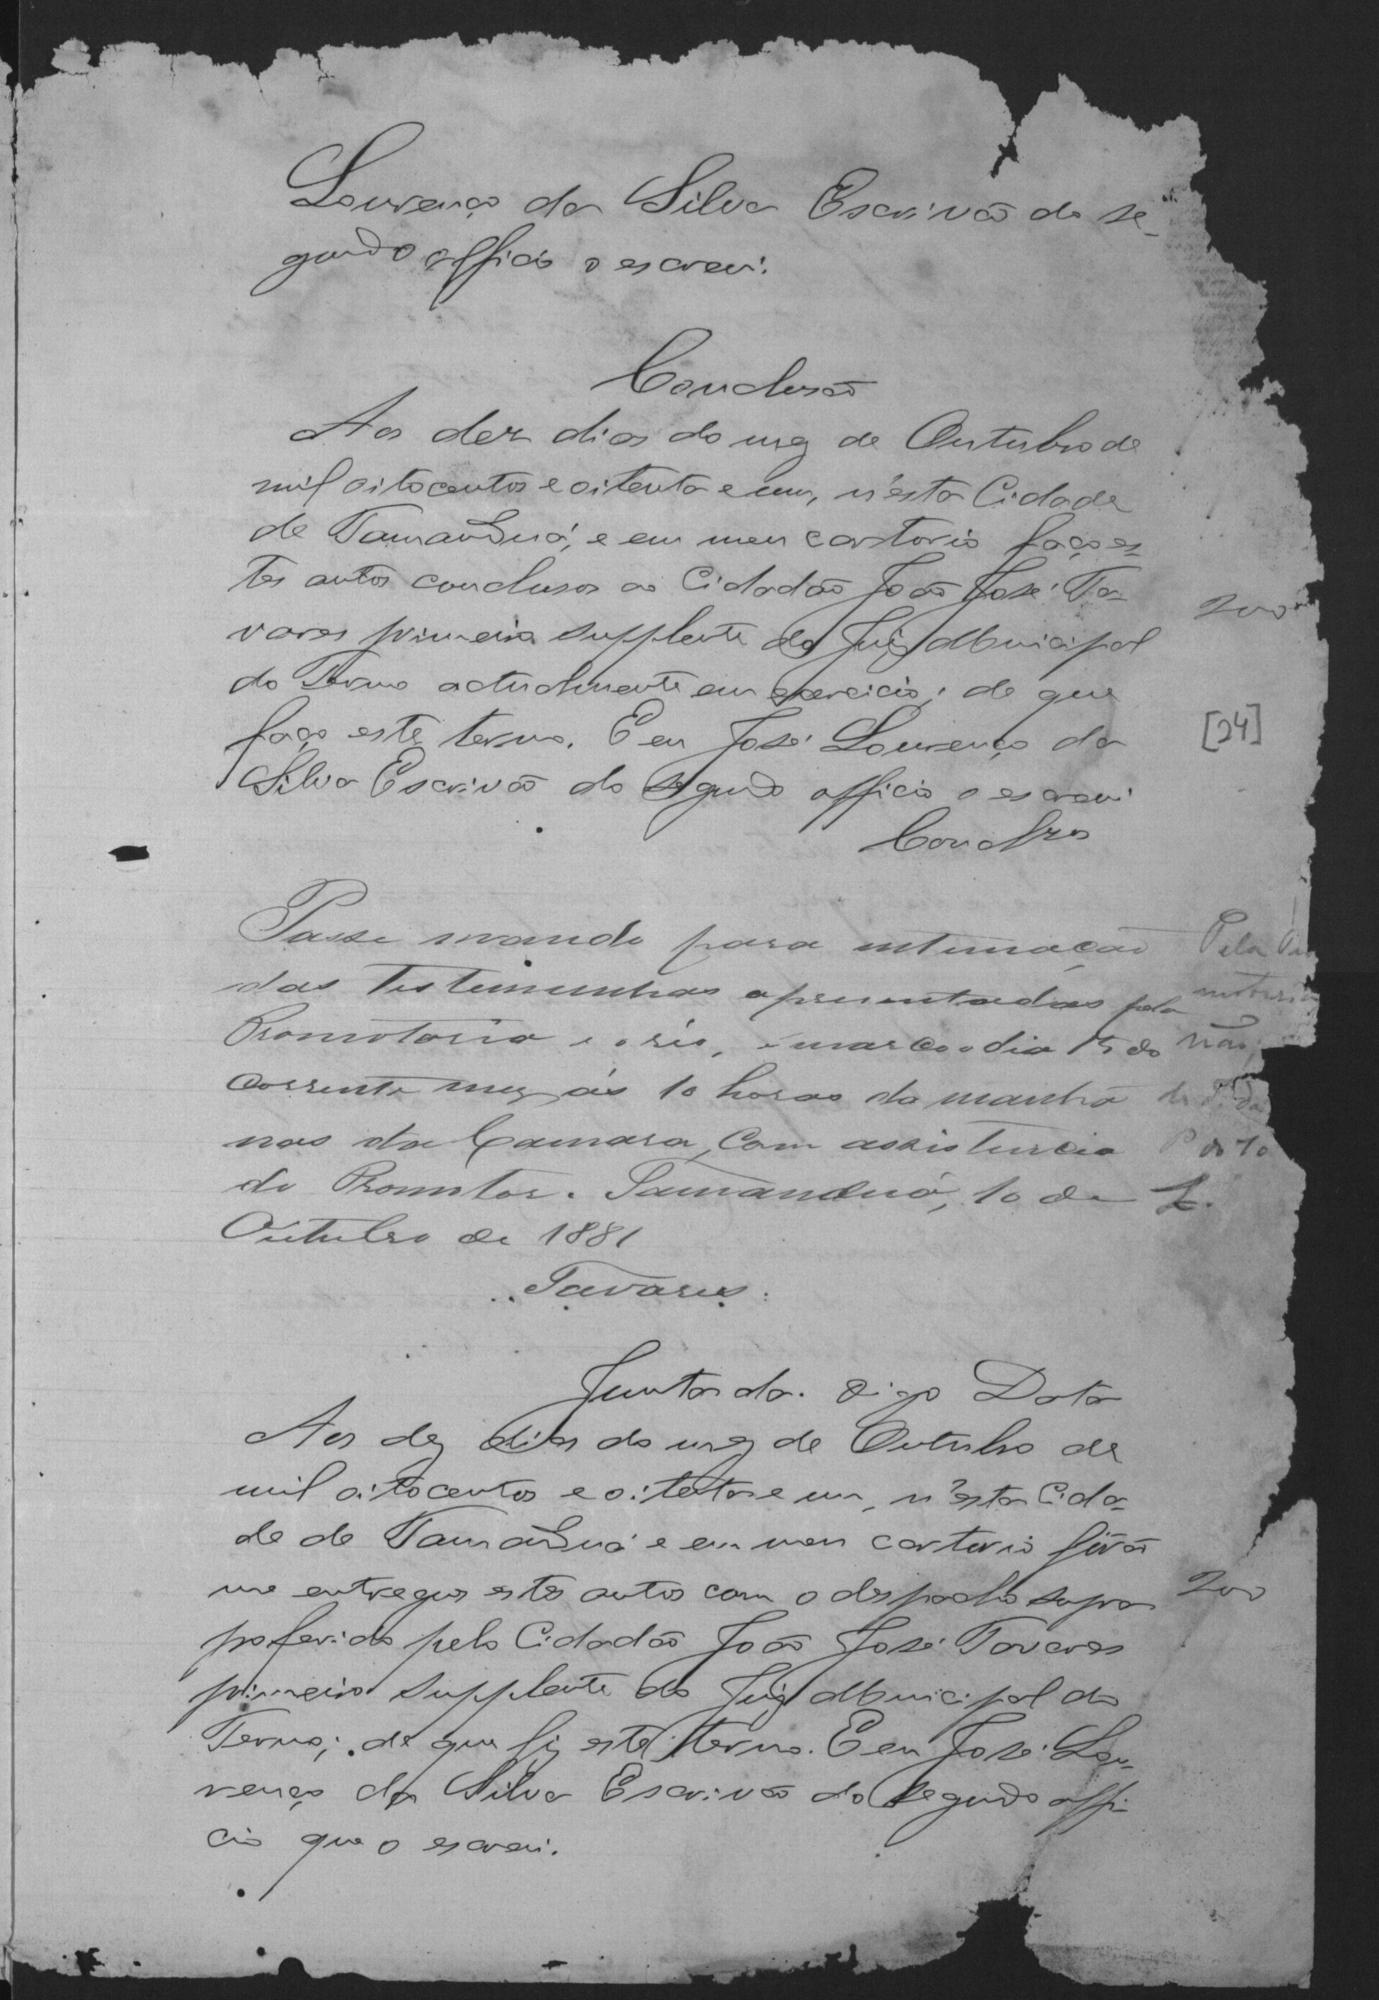 Lourenço da Silva Escrivão do se-
gundo officio o escrevi.
Conclusão
Aos dez dias do mez de Outubro de
mil oitocentos e oitenta e um, n'esta Cidade
de Tamanduá, e em meu cartorio faço es-
tes autos conclusos ao Cidadão João José Ta-
vares primeiro supplente do Juiz Municipal
do Termo actualmente em exercicio; de que
faço este termo. E eu José Lourenço da
Silva Escrivão do segundo officio o escrevi
Conclzos
200
[24]
Passe mando para intimação
das testemunhas apresentadas pela
Promotoria e o réo, e marco o dia 15 do
corrente mez ás 10 horas da manhã
nas da Camara, com assistencia
do Promotor. Tamanduá, 10 de
Outubro de 1881
Tavares.
Pela
não
Juntada. digo Data
Aos dez dias do mez de Outubro de
mil oitocentos e oitenta e um, n'esta Cida-
de de Tamanduá e em meu cartorio fôrão
me entregues estes autos com o despacho supra
proferido pelo Cidadão João José Tavares
primeiro supplente do Juiz Municipal do
Termo; de que fiz este termo. E eu José Lou-
renço da Silva Escrivão do segundo offi-
cio que o escrevi.
200